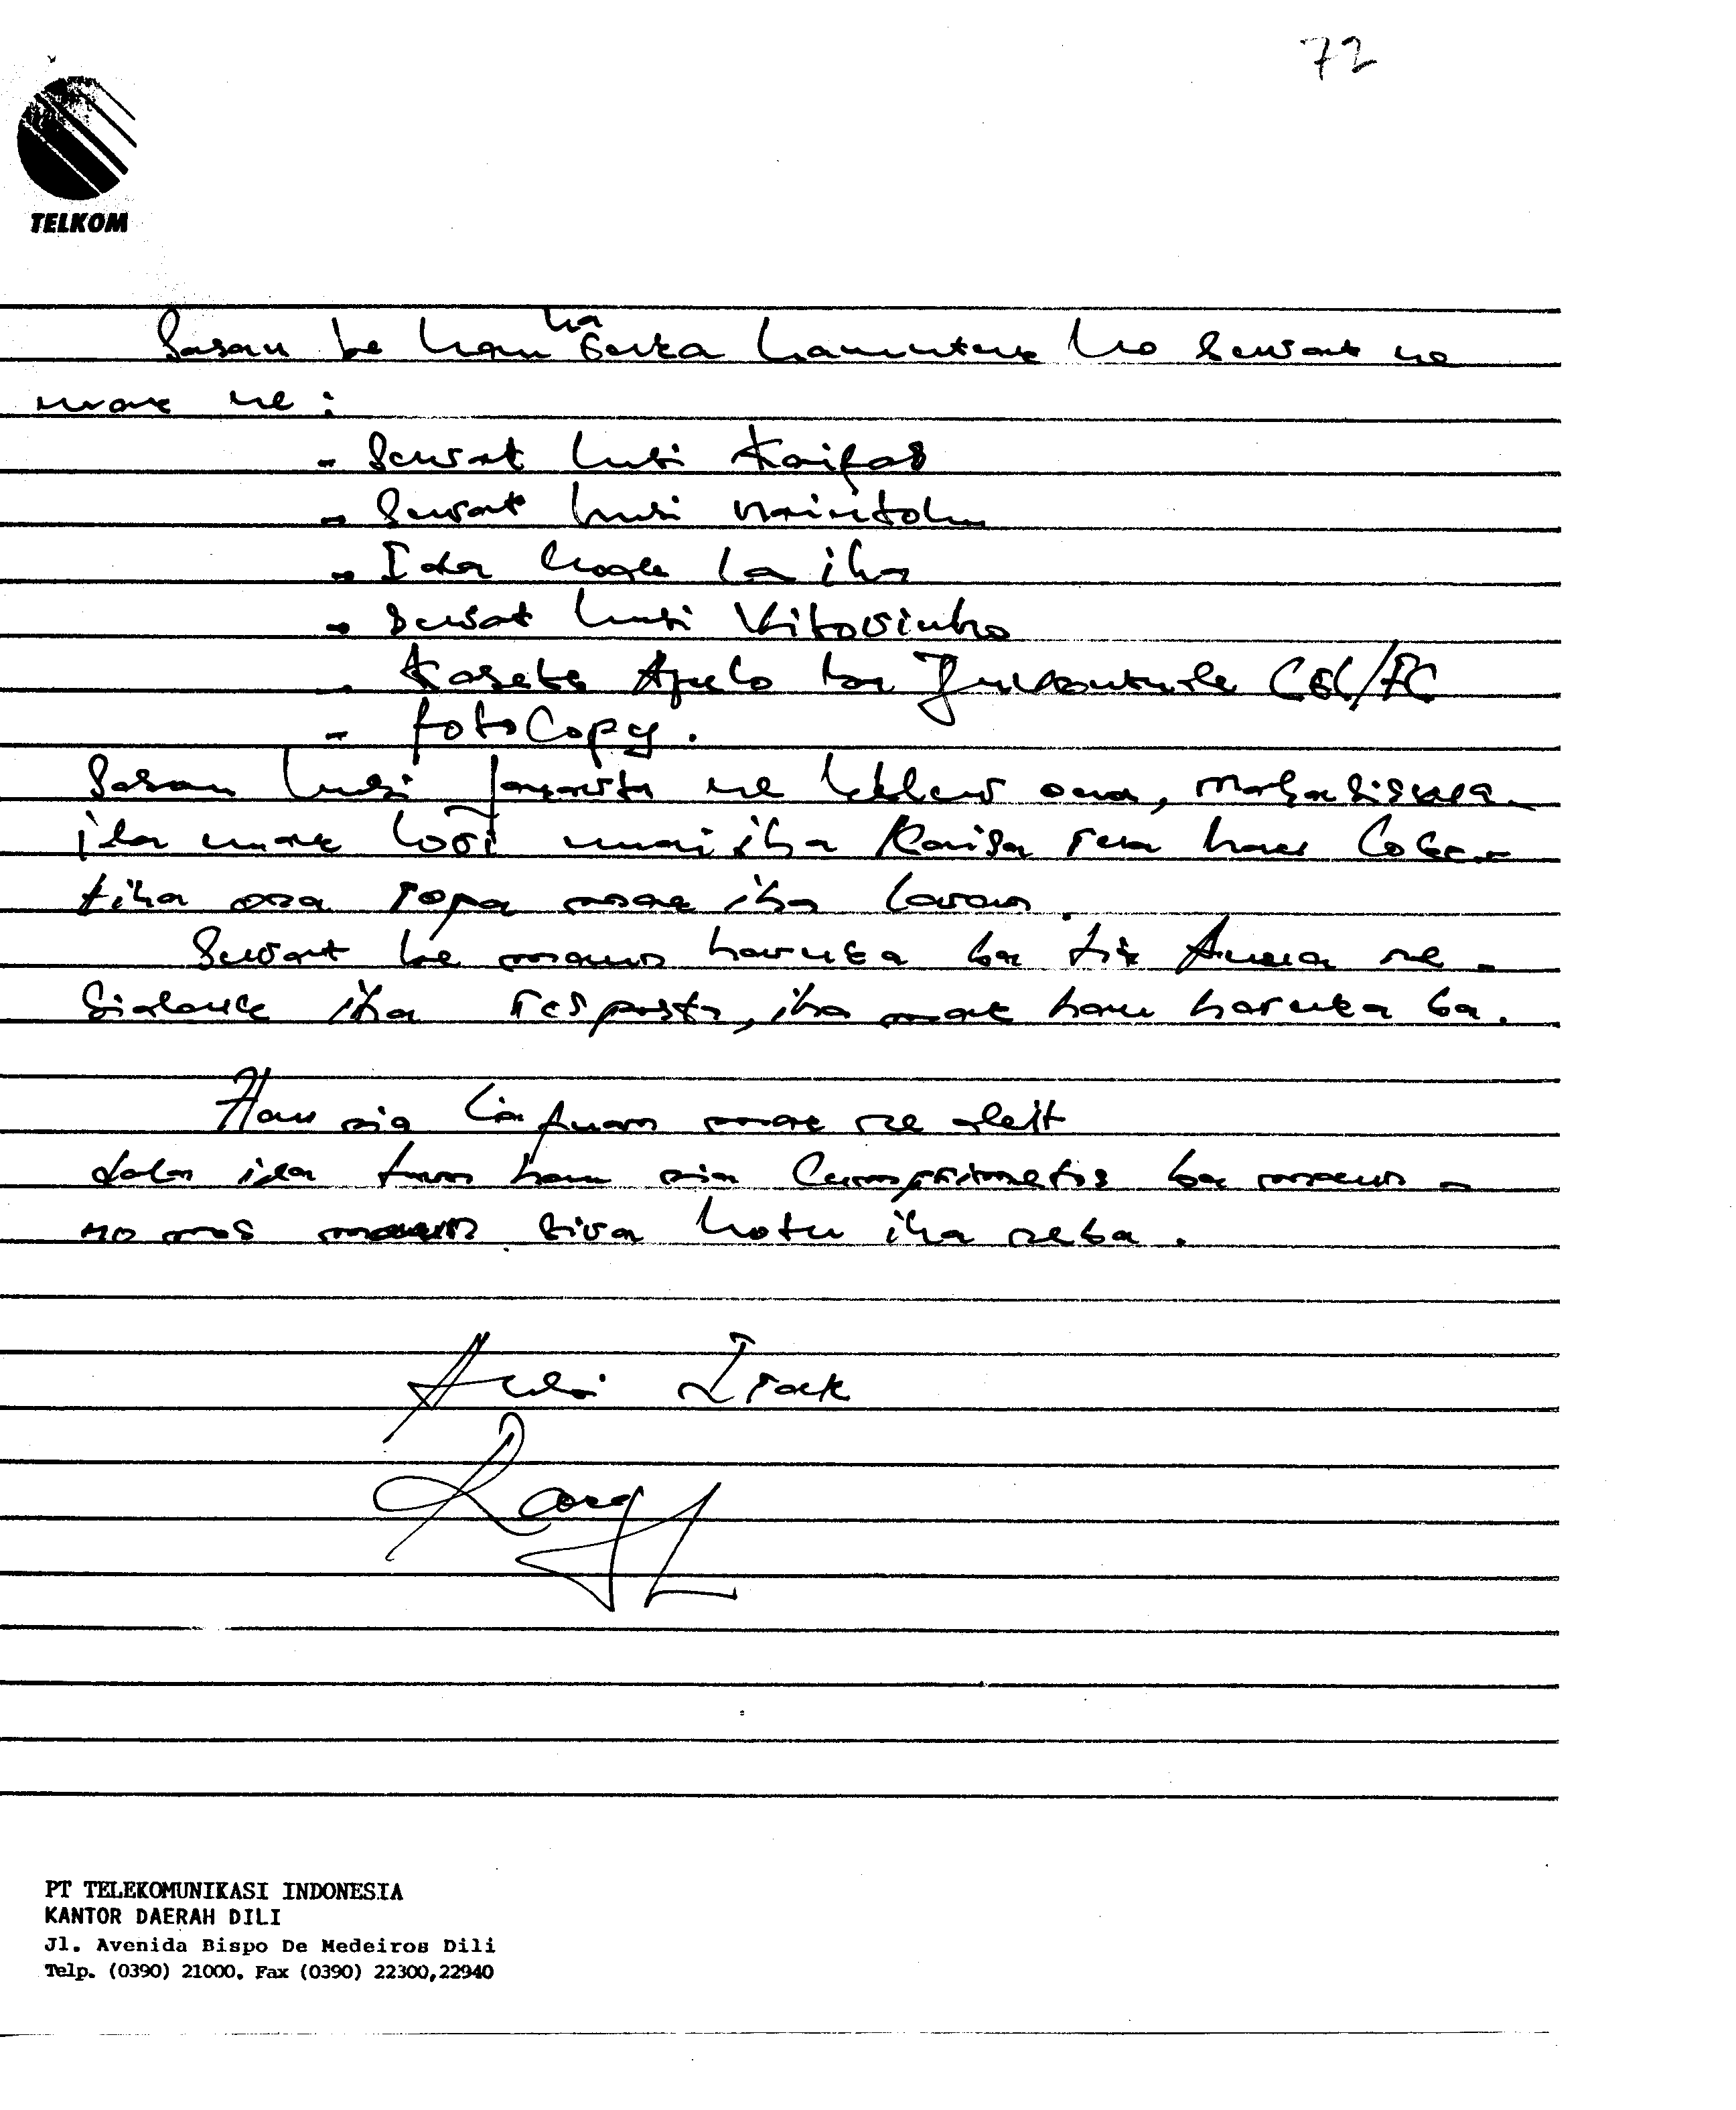 72
TELKOM
Sasan be hau haruka hamutuk ho surat ne
mak ne :
- Surat husi Kaifas
- Surat husi
- Ida hoak la iha
- Surat husi Vitorinho
- Kasete Apelo ba Juventude CEL/FC
- fotocopy.
Sasan husi Jakarta ne lekleur ona, mahasiswa
ida mak lori mai iha Kaisa rua hau
tiha ona ropa mak iha laran.
Surat be maun haruka ba tia Auxa ne -
sidauk iha resposta, iha mak hau haruka ba.
Hau nia lia fuan mak ne deit
dala ida tan hau nia Cumprimetos ba maun -
no mos maun sira hotu iha neba.
Husi
PT TELEKOMUNIKASI INDONESIA
KANTOR DAERAH DILI
Jl. Avenida Bispo De Medeiros Dili
Telp. (0390) 21000. Fax (0390) 22300,22940